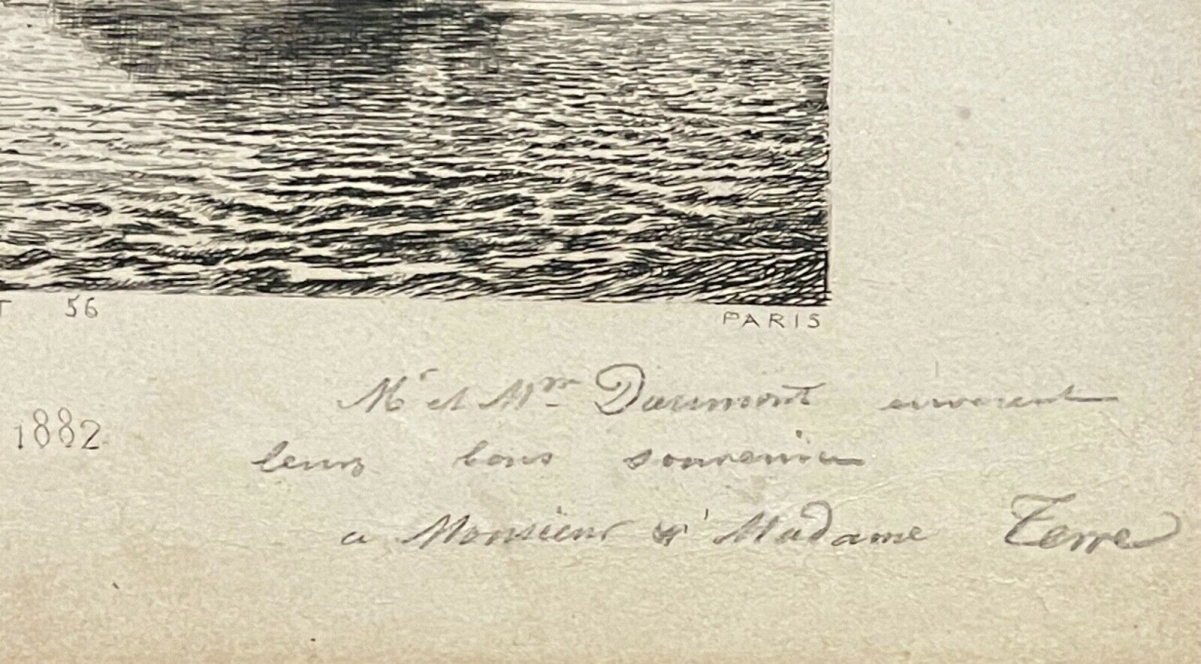 T 56
PARIS
1882
Mr et Mme Daumont envoient
leurs bons souvenirs
a Monsieur et Madame Terre